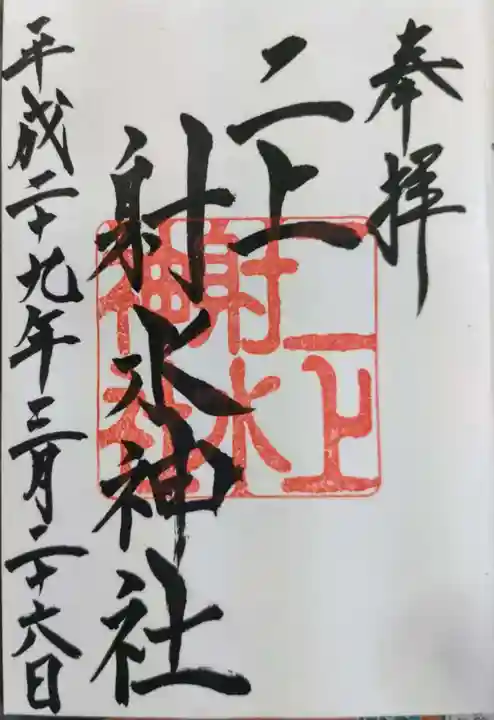 奉拝
二上
射水神社
二上
射水
神社
平成二十九年三月二十六日